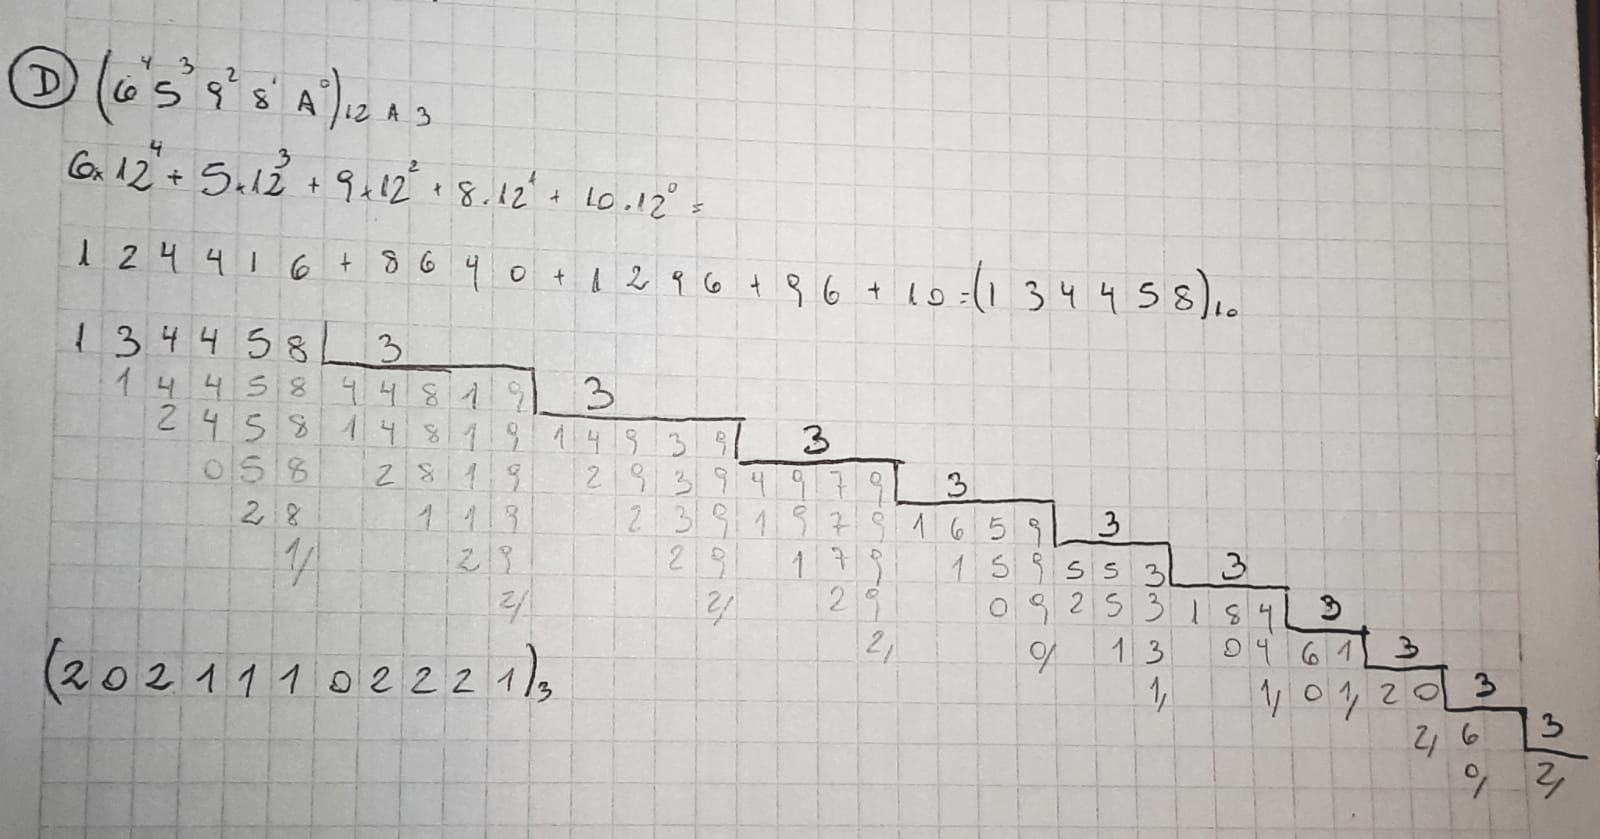 D (6⁴5³9²8¹A⁰)₁₂ A 3
6×12⁴ + 5×12³ + 9×12² + 8.12¹ + 10.12⁰ =
124416 + 8640 + 1296 + 96 + 10 = (134458)₁₀
134458 3
14458 44819 3
2458 14819 14939 3
058 2819 2939 4979 3
28 119 239 1979 1659 3
1/ 29 29 179 159 553 3
2/ 2/ 29 09 253 184 3
2, 0/ 13 04 61 3
1, 1, 01, 20 3
2, 6 3
0, 2,
(20211102221)₃